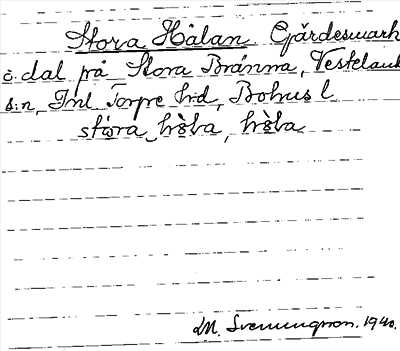 Stora Hålan Gärdesmark
i dal på Stora Bränna, Vestelanda
s:n, Inl Torpe hd, Bohus l
stóra hòla, hòla
M. Svenungsson. 1940.